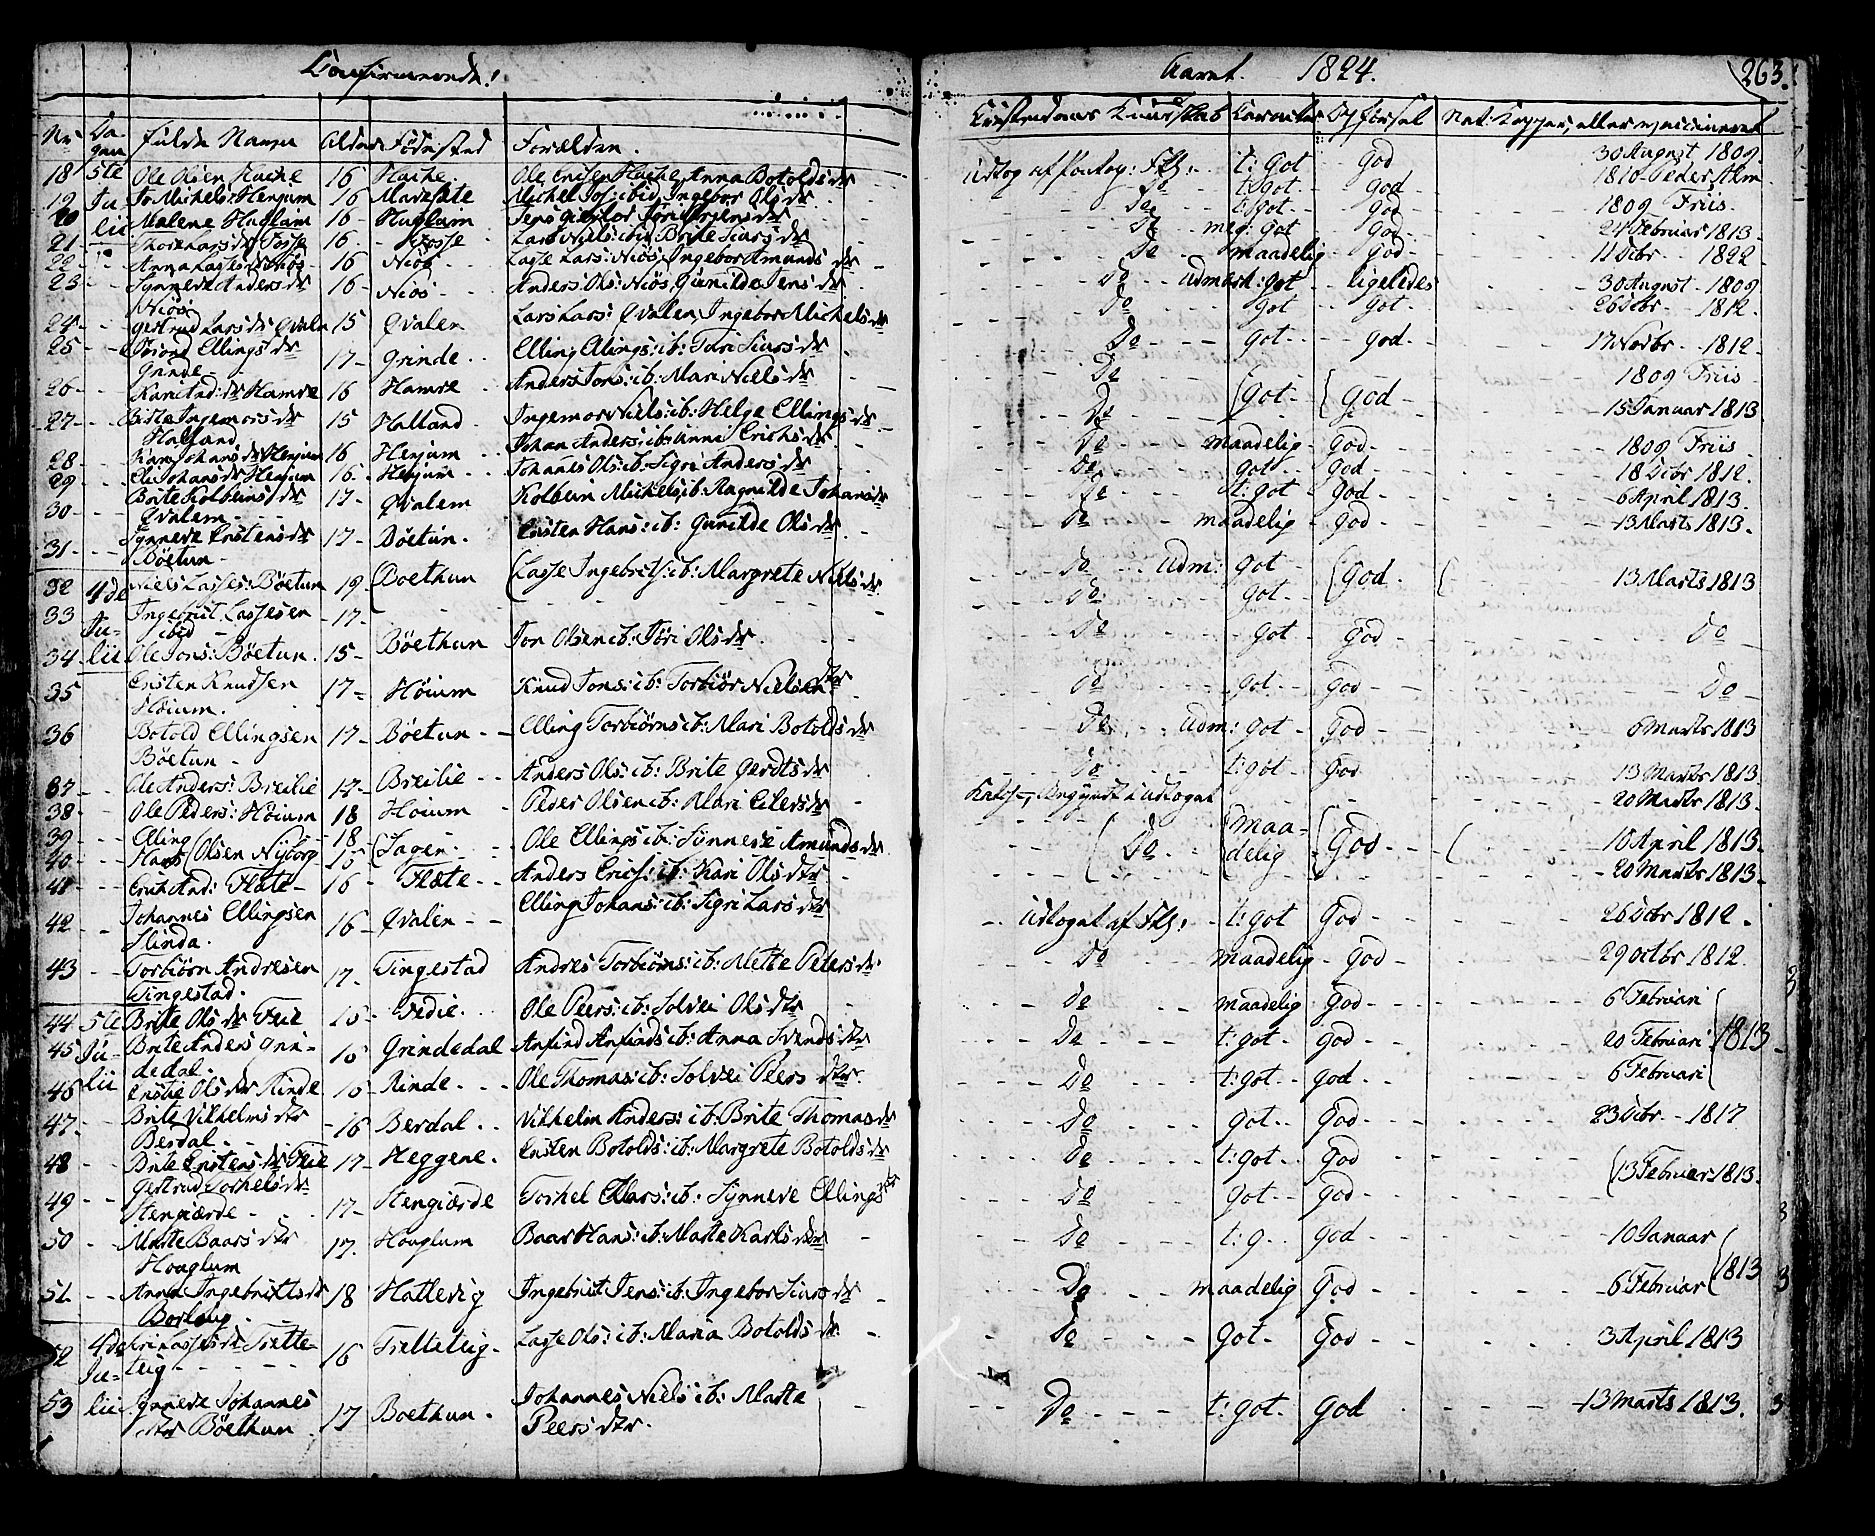 Confirmerede!
Aaret 1824.
263.
No Da gen Fulde Navne Alder Födested Forældre.
Christendoms Kundskab Caracter Opförsel Nat: Kopper, eller vaccineret
18 5te Ole Olsen Hache 16 Hache. Ole Ersten Hache, Anna Botolds dr t: Got God 30 August 1809.
19 Ju Jo Michels: Henjum 16 Do t: got god 1810 Peder Alm
20 lii Malene Huglum 16 Huglum Do t: got God 1809 Friis.
21 16 Fosse Lars Niels: ibid, Brite Siurs dr Do meg: got God 24 Februar 1813.
22 Anna Lasses dr Niös 16 Niös Lasse Lars: Niös, Ingebor Amunds dr Do maadelig God 11 Octbr 1822
23 Synneve Anders dr Niös 16 Niös Anders Ols: Niös, Gunilde Jens dr Do Udmærk: got ligeledes 30 August 1809
24 Gertrud Lars dr Qvaln 15 Qvalen Lars Lars: Qvalen, Ingebor Michels dr Do got got 26 Octbr 1812.
25 Ellings dr Grinde 17 Grinde Elling Ellings: ib: Kari Siurs dr Do got god 17 Novbr 1812
26 Hamre 16 Hamre Anders Jons: ib: Mari Niels dr Do got God 1809 Friis
27 Brite Ingemors dr Halland 15 Halland Ingemor Niels: ib: Helge Ellings dr Do 15 Januar 1813
28 Kari Johans dr Henjum 16 Henjum Johan Anders: ib: Anna Erichs dr Do maadelig God 1809 Friis
29 Eli Johans dr Henjum 16 Henjum Johanes Ols: ib: Sigri Anders dr Do got God 18 Octbr 1812.
30 Brite Kolbeins dr Qvalem 17 Qvalem Kolbein Michels: ib: Ragnilde Johans dr Do t: got God 6 April 1813.
31 Synneve Erstens dr Böetun 17 Böetun. Ersten Hans: ib: Gunilde Ols dr Do maadelig God 13 Marts 1813.
32 4de Niels Lasses: Böetun 19 Boethun Lasse Ingebrits: ib: Margrete Niels dr Do Udm: got God 13 Marts 1813
33 Ju- Ingebrit Lassesen ibid 17 Do got
34 lii Ole Jons: Böetun 15 Böethun Jon Olsen ib: Töri Ols dr Do got God Do
35 Ersten Knudsen Höium. 17 Höium Knud Jons: ib: Torbiör Nielsen dtr Do got God Do
36 Botold Ellingsen Böetun 17 Böetun Elling Torbiörns: ib: Mari Botolds dr Do Udm: got God 6 Marts 1813
37 Ole Anders: Breilie 17 Breilie Anders Ols: ib: Brite Gerdts dr Do t: got God 13 Marts 1813
38 Ole Peders: Höium 18 Höium Peder Olsen ib: Mari Eilers dr 20 Marts 1813.
39 Elling 18
40 Hans Olsen Nyborg 15 Sagen Ole Ellings: ib: Synneve Amunds dr Do maa- delig God 10 April 1813
41 Erik And: Flate 16 Flate Anders Erics: ib: Kari Ols dtr 20 Marts 1813
42 Johannes Ellingsen Slinda. 16 Qvalen Elling Johans: ib: Sigri Lars dr Udlogat af Fkl: t: got God 26 Octbr 1812
43 Torbiörn Andresen Tingestad. 17 Tingestad Andres Torbiörns: ib: Mette Peters dr Do maadelig God 29 octbr 1812.
44 5te Brite Ols dr Feie 15 Fedie. Ole Peers: ib: Solvei Ols dtr Do maadelig God 6 Februari
45 Ju- Brite Anders Grin- dedal. 15 Grindedal Anfind Anfinds: ib: Anna Svends dtr Do t: got God 20 Februari 1813
46 lii Erstie Ols dr Rinde 15 Rinde Ole Thomas: ib: Solvei Peers dtr. Do t: got God 6 Februari
47 Brite Vilhelms dtr Berdal 16 Berdal Vilhelm Anders: ib: Brite Thomas dr Do got God 23 Octbr 1817
48 Brite Erstens dr Feie 17 Heggene. Ersten Botolds: ib: Margrete Botolds dr Do t: got God 13 Februar 1813.
49 Gertrud Torkels dr Stengiærde 17 Stengiærde Torkel Lars: ib: Synneve Ellings dtr Do got God
50 Marte Baars dtr Houglum 17. Houglum Baar Hans: ib: Marte Karls dtr Do t: g God 10 Januar
51 Anna Ingebrits dr 18 Hattevig Ingebrit Jens: ib: Ingebor Siurs dr Do maadelig God 6 Februar 1813
52 4de Ju- Lasses dr Trette- teig 16 Tretteteig Lasse Ols: ib: Maria Botolds dr Do got God 3 April 1813
53 lii Synneve Johannes dtr Böethun 17 Boethun Johannes Niels: ib: Marte Peers dtr. Do t: got God 13 Marts 1813.